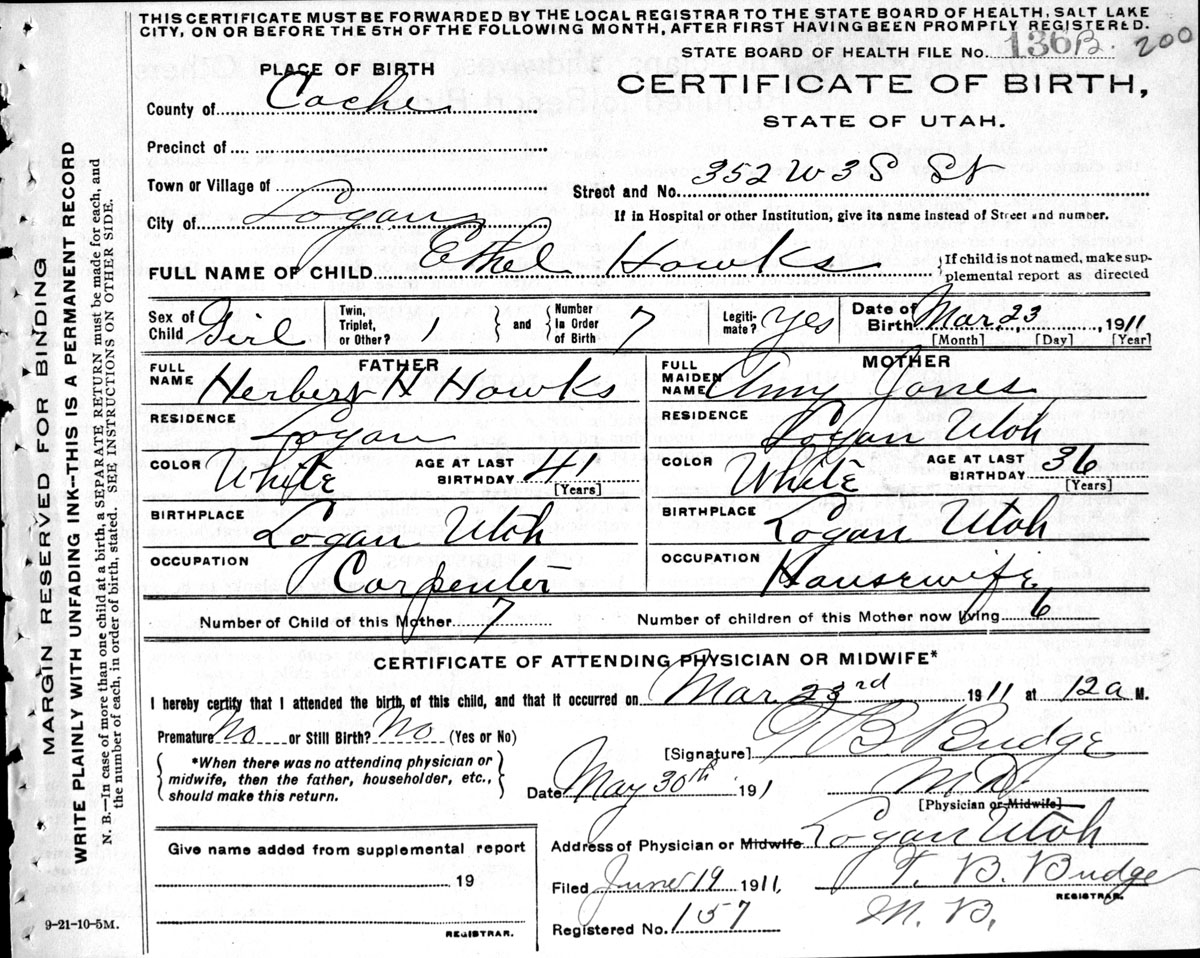 THIS CERTIFICATE MUST BE FORWARDED BY THE LOCAL REGISTRAR TO THE STATE BOARD OF HEALTH, SALT LAKE
CITY, ON OR BEFORE THE 5TH OF THE FOLLOWING MONTH, AFTER FIRST HAVING BEEN PROMPTLY REGISTERED.
STATE BOARD OF HEALTH FILE No. 136 B. 200
PLACE OF BIRTH
CERTIFICATE OF BIRTH,
STATE OF UTAH.
County of Cache
Precinct of
Town or Village of
Street and No. 352 W 3 S St
City of Logan
If in Hospital or other Institution, give its name instead of Street and number.
FULL NAME OF CHILD Ethel Hawks
If child is not named, make sup-
plemental report as directed
Sex of Child Girl
Twin, Triplet, or Other? 1
and
Number In Order of Birth 7
Legiti-mate? Yes
Date of Birth Mar. 23, 1911
[Month] [Day] [Year]
FATHER
FULL NAME Herbert H Hawks
RESIDENCE Logan
COLOR White AGE AT LAST BIRTHDAY 41
[Years]
BIRTHPLACE Logan Utah
OCCUPATION Carpenter
MOTHER
FULL MAIDEN NAME Amy Jones
RESIDENCE Logan Utah
COLOR White AGE AT LAST BIRTHDAY 36
[Years]
BIRTHPLACE Logan Utah
OCCUPATION Housewife
Number of Child of this Mother 7 Number of children of this Mother now living 6
CERTIFICATE OF ATTENDING PHYSICIAN OR MIDWIFE*
I hereby certify that I attended the birth of this child, and that it occurred on Mar 23rd 1911 at 12 a M.
Premature No or Still Birth? No (Yes or No)
[Signature] T B Budge
*When there was no attending physician or
midwife, then the father, householder, etc.,
should make this return.
Date May 30th 1911 M D.
[Physician or Midwife]
Give name added from supplemental report
19
REGISTRAR.
Address of Physician or Midwife Logan Utah
Filed June 19 1911, T. B. Budge
REGISTRAR.
M. B.
Registered No. 157
9-21-10-5M.
MARGIN RESERVED FOR BINDING
WRITE PLAINLY WITH UNFADING INK--THIS IS A PERMANENT RECORD
N. B.—In case of more than one child at a birth, a SEPARATE RETURN must be made for each, and
the number of each, in order of birth, stated. SEE INSTRUCTIONS ON OTHER SIDE.